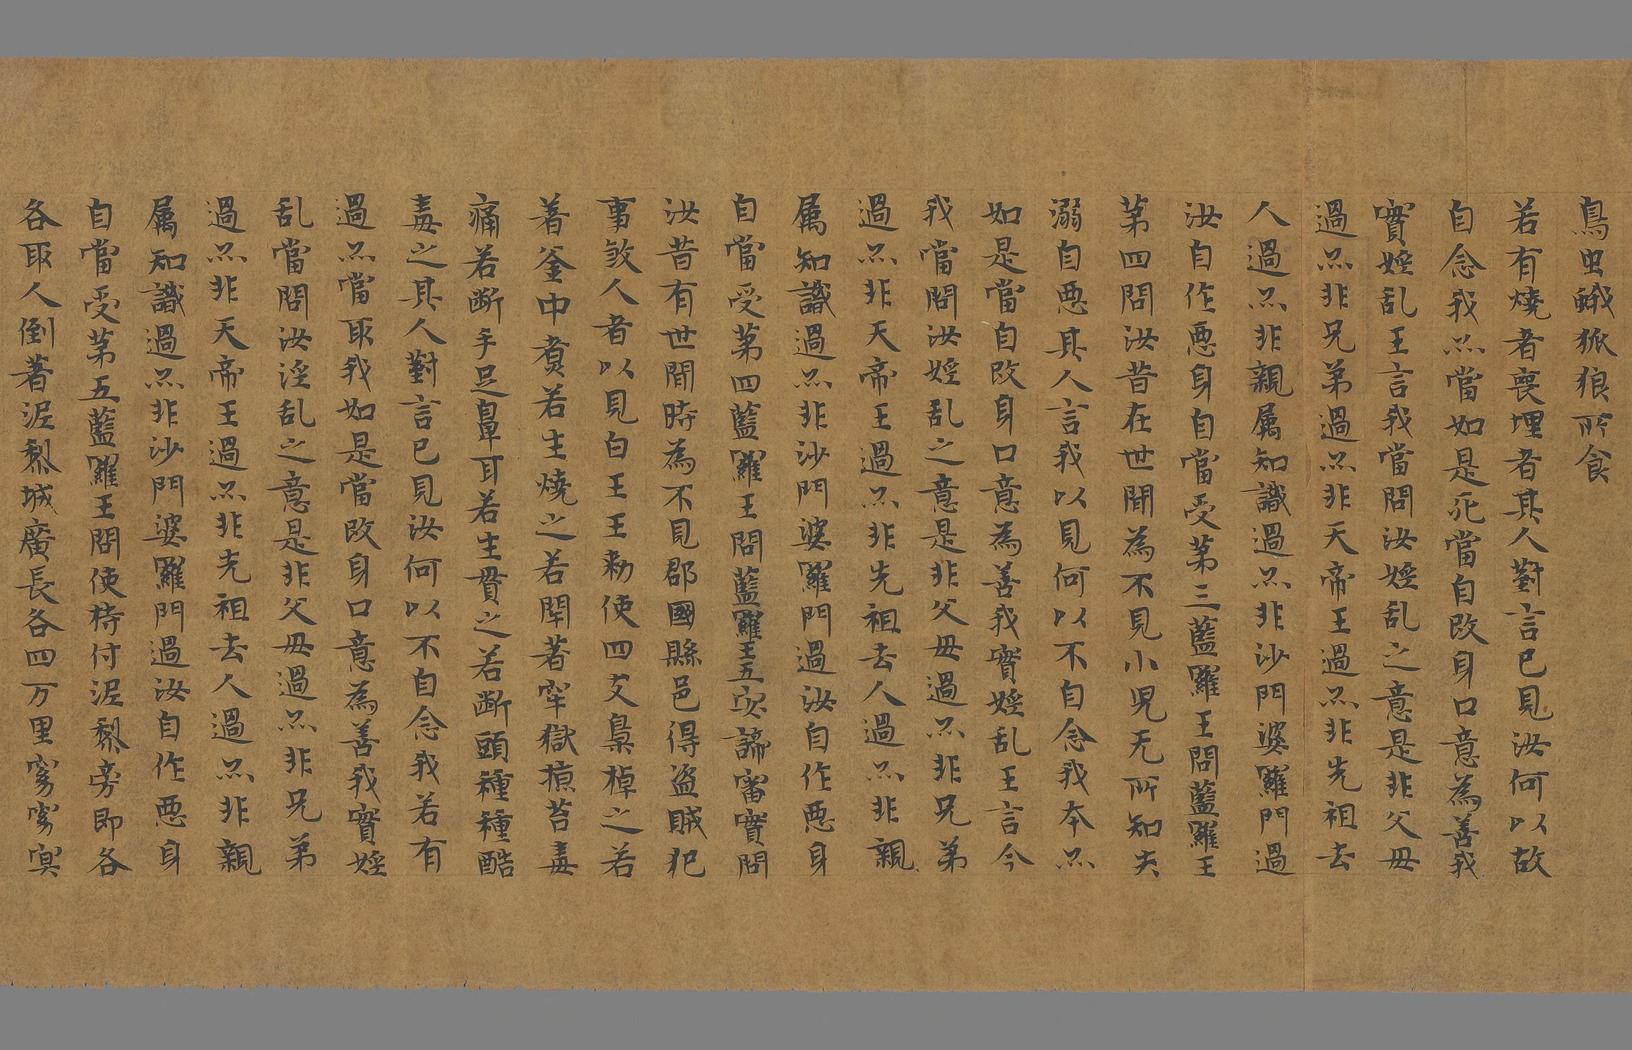 鳥虫蟻狐狼所食
若有燒者喪埋者其人對言已見汝何以故
自念我亦當如是死當自改身口意為善我
實婬乱王言我當問汝婬乱之意是非父母
過亦非兄弟過亦非天帝王過亦非先祖去
人過亦非親属知識過亦非沙門婆羅門過
汝自作惡身自當受第三藍羅王問藍羅王
第四問汝昔在世間為不見小兒无所知夫
溺自惡其人言我以見何以不自念我本亦
如是當自改身口意為善我實婬乱王言今
我當問汝婬乱之意是非父母過亦非兄弟
過亦非天帝王過亦非先祖去人過亦非親
属知識過亦非沙門婆羅門過汝自作惡身
自當受第四藍羅王問藍羅王五㝎諦審實問
汝昔有世間時為不見郡國縣邑得盜賊犯
事煞人者以見白王王勑使四支梟棹之若
著釜中煑若生燒之若閉著牢獄掠苔毒
痛若斷手足鼻耳若生貫之若斷頭種種酷
毒之其人對言已見汝何以不自念我若有
過亦當取我如是當改身口意為善我實婬
乱當問汝淫乱之意是非父母過亦非兄弟
過亦非天帝王過亦非先祖去人過亦非親
属知識過亦非沙門婆羅門過汝自作惡身
自當受第五藍羅王問使持付泥犁旁即各
各取人倒著泥犁城廣長各四万里窈窈㝠